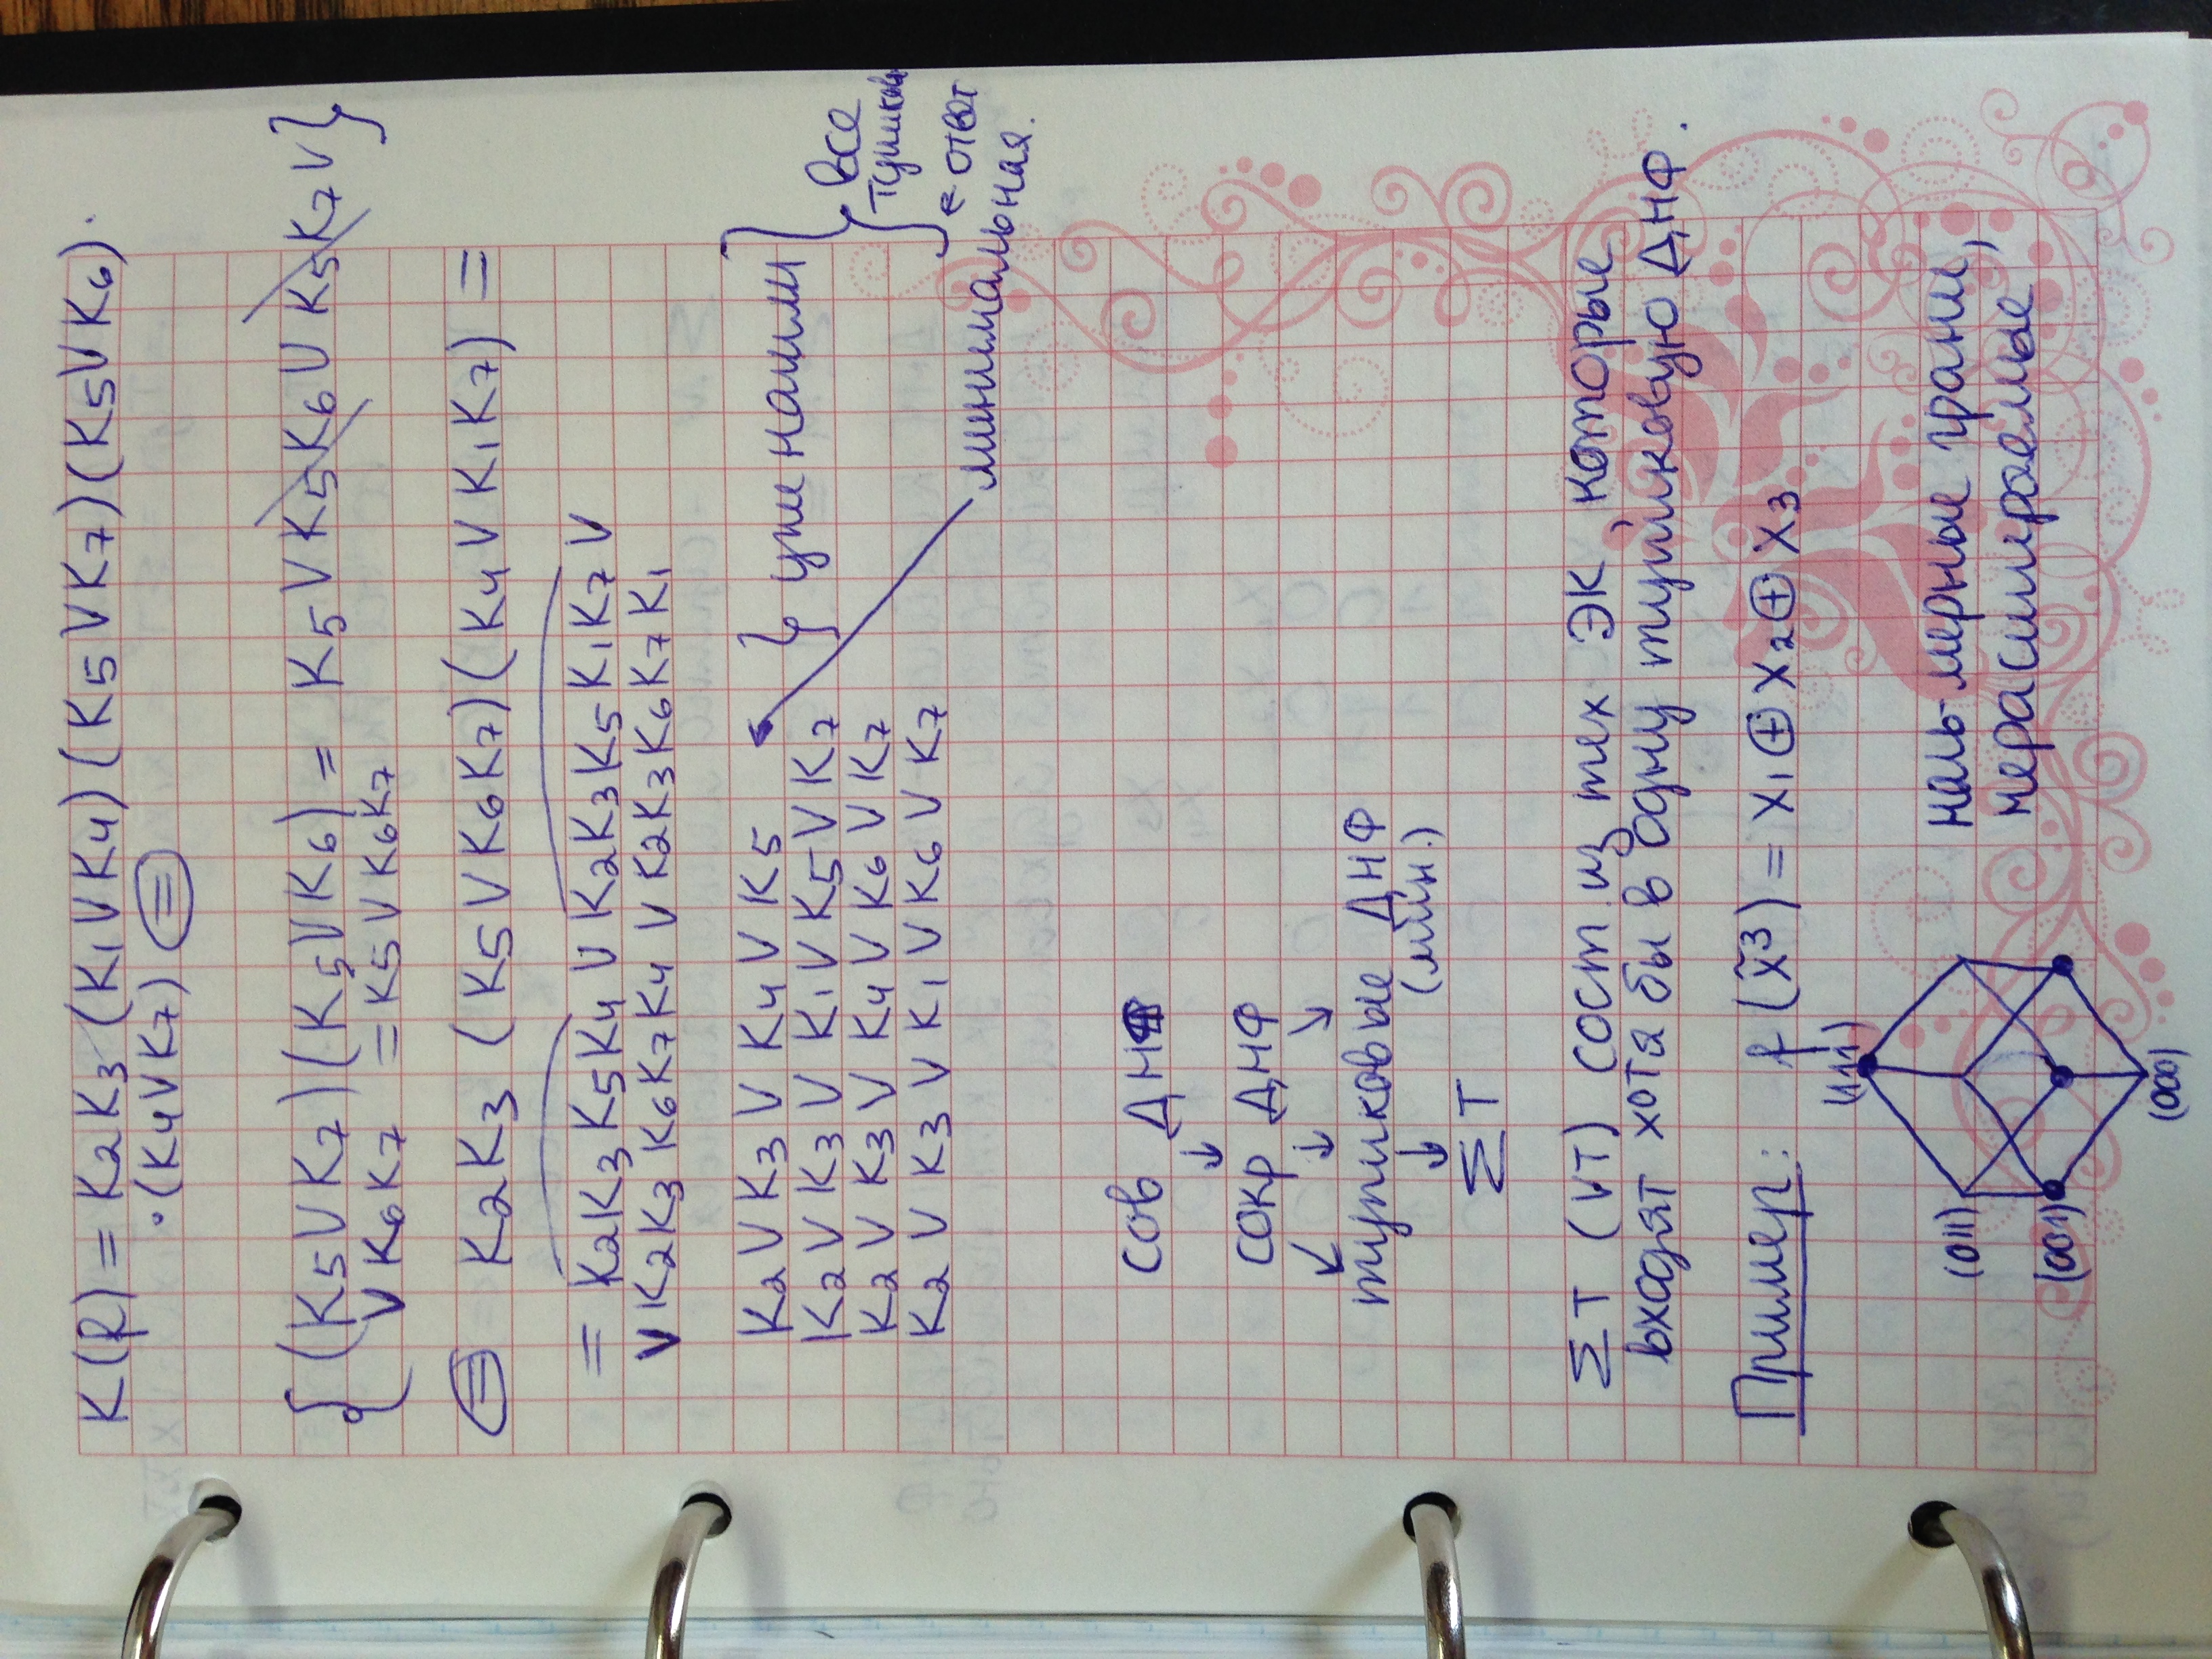 K(f) = K₂K₃ (K₁VK₄)(K₅VK₇)(K₅VK₆).
·(K₄VK₇) ⊜
{(K₅VK₇)(K₅VK₆) = K₅VK₅K₆VK₅K₇V}
VK₆K₇ = K₅VK₆K₇
⊜ K₂K₃ (K₅VK₆K₇)(K₄VK₁K₇) =
= K₂K₃K₅K₄VK₂K₃K₅K₁K₇V
VK₂K₃K₆K₇K₄VK₂K₃K₆K₇K₁
K₂VK₃VK₄VK₅
} уже нашли
K₂VK₃VK₁VK₅VK₇
K₂VK₃VK₄VK₆VK₇
K₂VK₃VK₁VK₆VK₇
} все
← ответ
минимальная.
сов ДНФ
↓
сокр ДНФ
↙ ↓ ↘
тупиковые ДНФ
↓ (мин.)
ΣT
ΣT (VT) сост из тех ЭК которые
входят хотя бы в одну тупиковую ДНФ.
Пример: f(x̃³) = x₁⊕x₂⊕x₃
(111)
(011)
(001)
(000)
нольмерные грани,
нерасширяемые